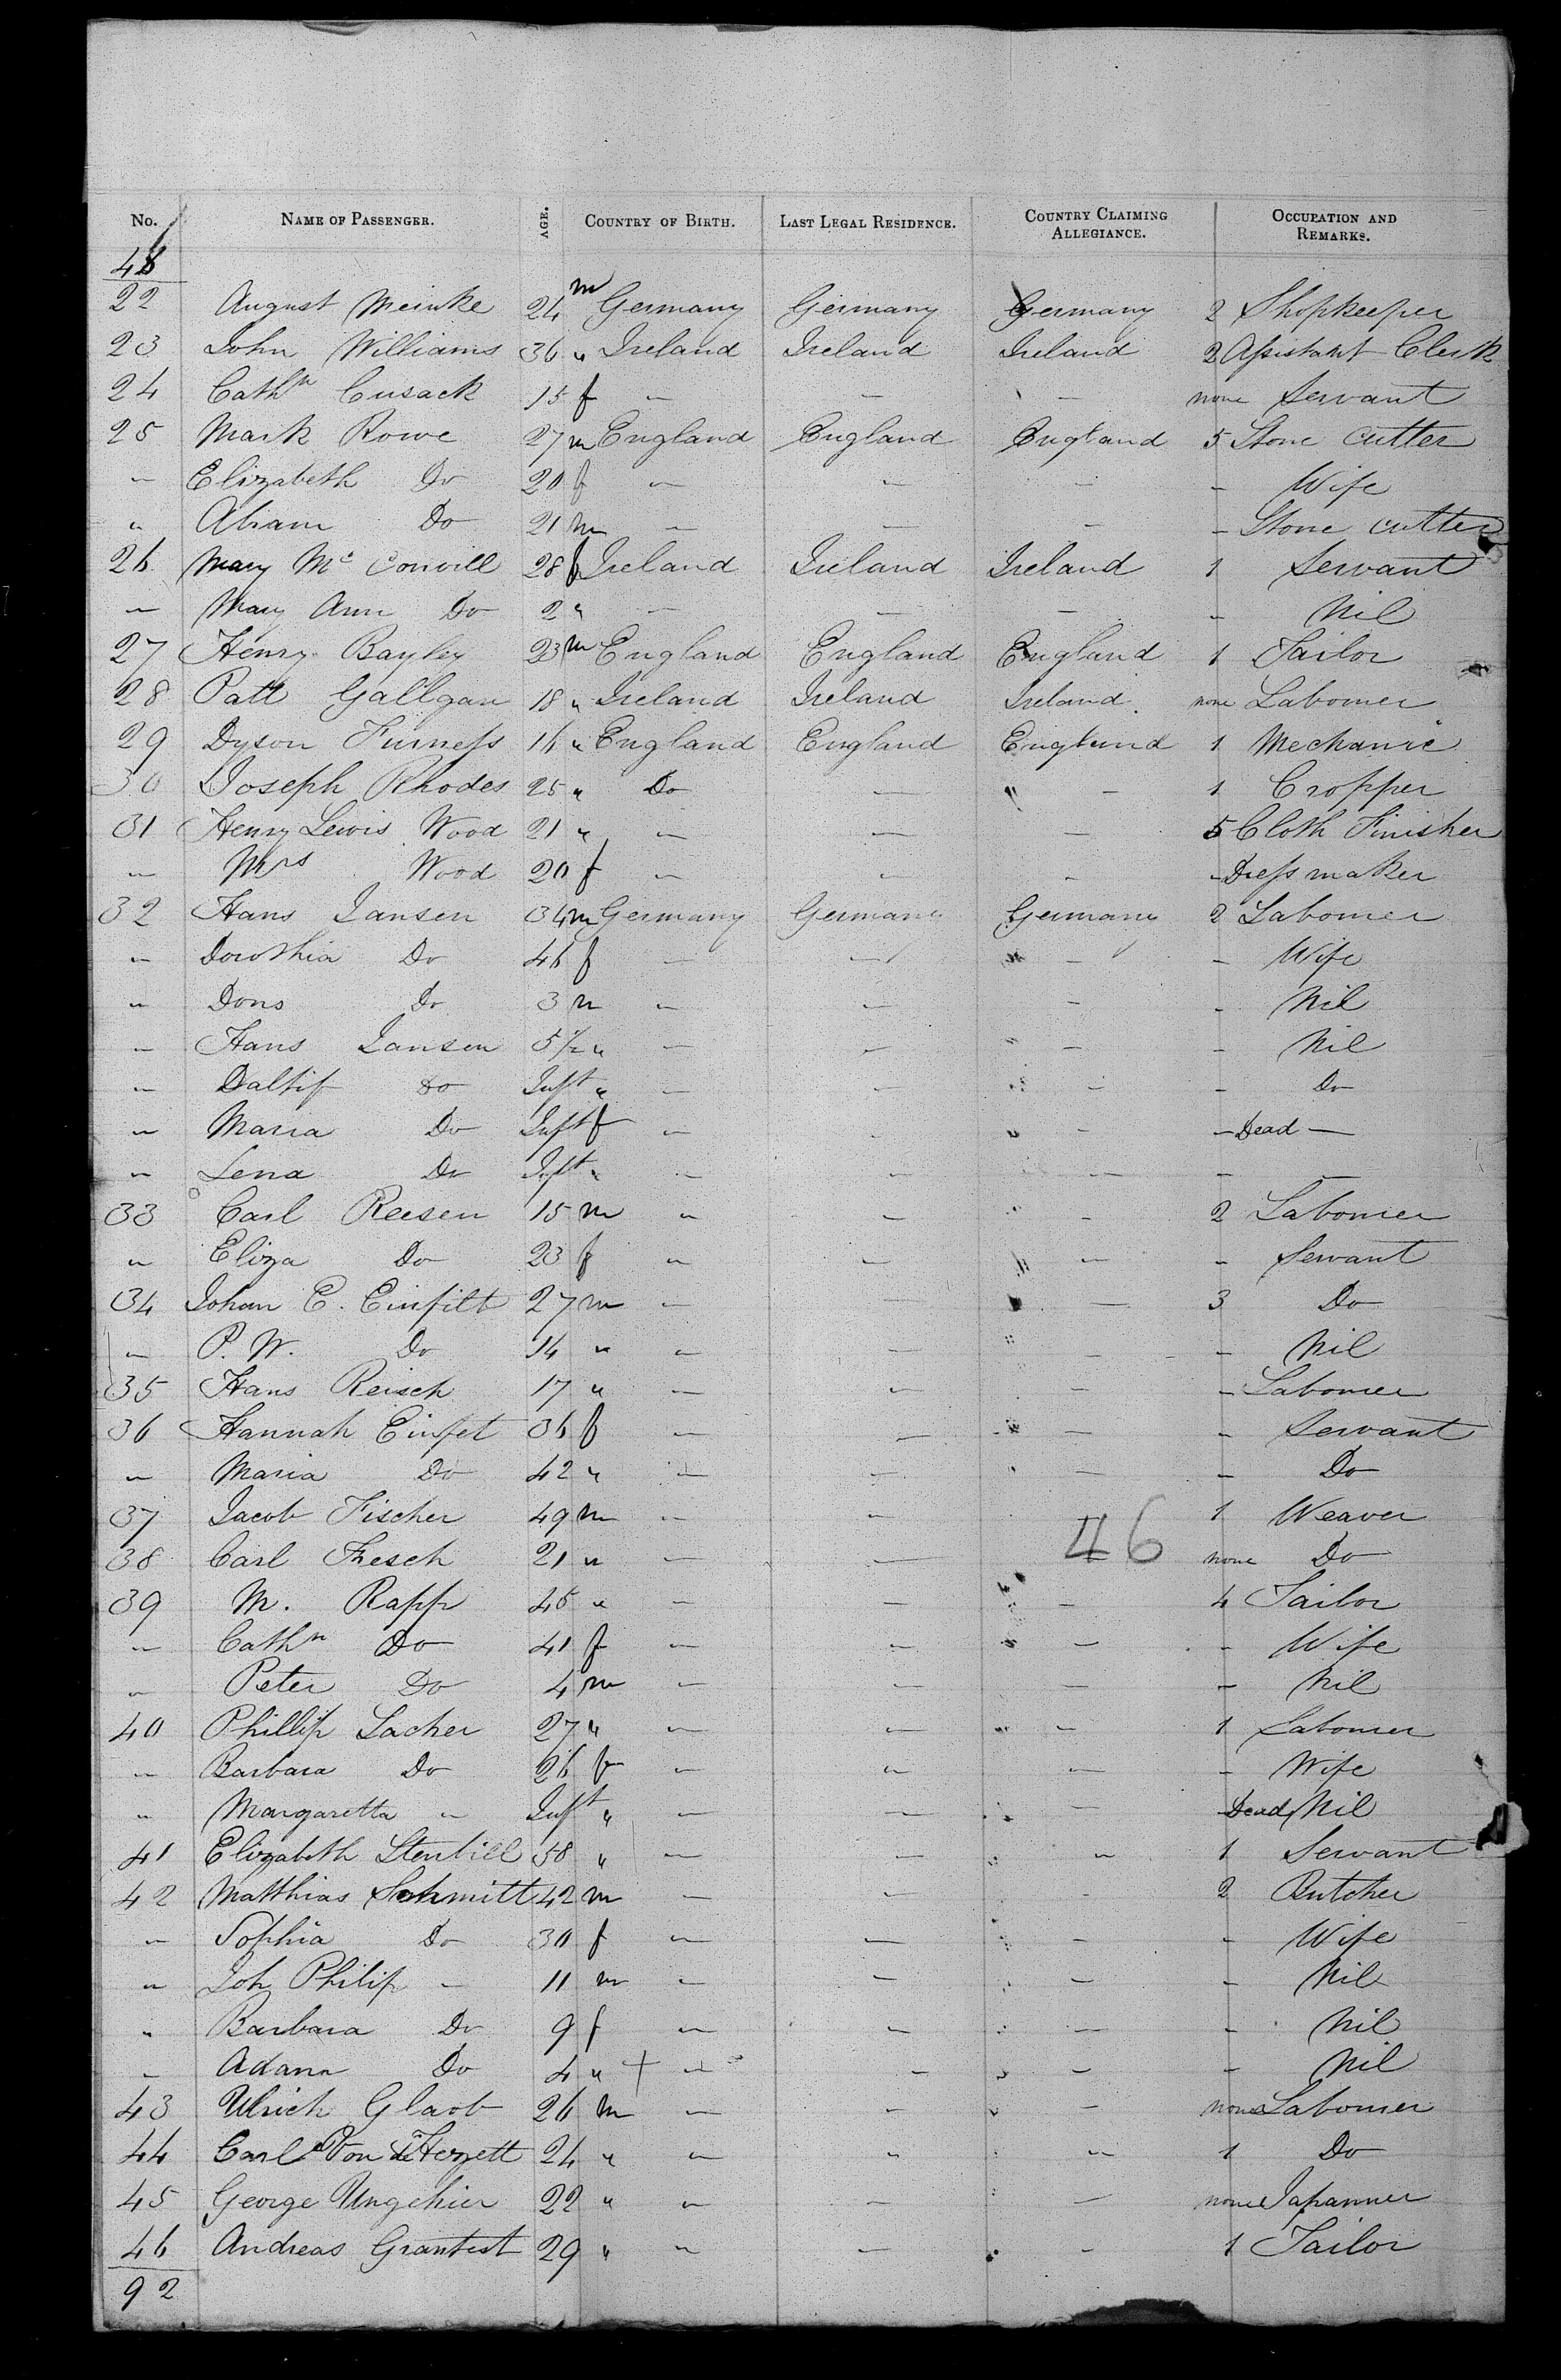 No. NAME OF PASSENGER. AGE. COUNTRY OF BIRTH. LAST LEGAL RESIDENCE. COUNTRY CLAIMING ALLEGIANCE. OCCUPATION AND REMARKS.
22 August Meinke 24 m Germany Germany Germany 2 Shopkeeper
23 John Williams 36 " Ireland Ireland Ireland 2 Assistant Clerk
24 Cathn Cusack 15 f " " " none Servant
25 Mark Rowe 27 m England England England 5 Stone cutter
" Elizabeth Do 20 f " " " " Wife
" Abram Do 21 m " " " " Stone cutter
26 Mary Mc Convill 28 f Ireland Ireland Ireland 1 Servant
" Mary Ann Do 2 " " " " " Nil
27 Henry Bayley 23 m England England England 1 Tailor
28 Patt Gallgan 18 " Ireland Ireland Ireland none Labourer
29 Dyson Furness 16 " England England England 1 Mechanic
30 Joseph Rhodes 25 " Do " " 1 Cropper
31 Henry Lewis Wood 21 " " " " 5 Cloth Finisher
" Mrs Wood 20 f " " " " Dress maker
32 Hans Jansen 34 m Germany Germany Germany 2 Labourer
" Dorothia Do 46 f " " " " Wife
" Dons Do 3 m " " " " Nil
" Hans Jansen " " " " " Nil
" Do Inft " " " " " Do
" Maria Do Inft f " " " " Dead
" Lena Do Inft " " " " " "
33 Carl Reesen 15 m " " " 2 Labourer
" Eliza Do 23 f " " " " Servant
34 Johan C. Einfilt 27 m " " " 3 Do
" P. W. Do 14 " " " " " Nil
35 Hans Reisch 17 " " " " " Labourer
36 Hannah Einfet 36 f " " " " Servant
" Maria Do 42 " " " " " Do
37 Jacob Fischer 49 m " " 1 Weaver
46
38 Carl Fresch 21 " " " none Do
39 M. Rapp 45 " " " " 4 Tailor
" Cathn Do 41 f " " " " Wife
" Peter Do 4 m " " " " Nil
40 Phillip Lacher 27 " " " " 1 Labourer
" Barbara Do 26 f " " " " Wife
" Margaretta " Inft " " " " Dead Nil
41 Elizabeth Stenbill 58 " " " " 1 Servant
42 Matthias Schmitt 42 m " " 2 Butcher
" Sophia Do 30 f " " " " Wife
" Joh Philip " 11 m " " " " Nil
" Barbara Do 9 f " " " " Nil
" Adam Do 4 " + " " " " Nil
43 Ulrich Glaob 26 m " " " none Labourer
44 Carl Von 24 " " " " 1 Do
45 George Ungehier 22 " " " " none Japanner
46 Andreas Grantest 29 " " " " 1 Tailor
92